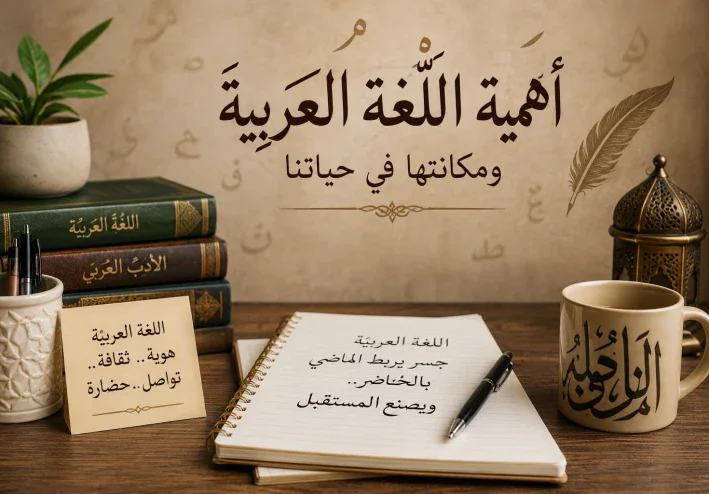 أهمية اللّغة العَرَبِيةَ
ومكانتها في حياتنا
اللغَّة العَربيَّة
الأدبُ العَربَي
اللغة العربيّة
هوية.. ثقافة..
تواصل..حضارة
اللغة العربيّة
جسر يربط الماضي
بالحُناضر..
ويصنع المستقبل